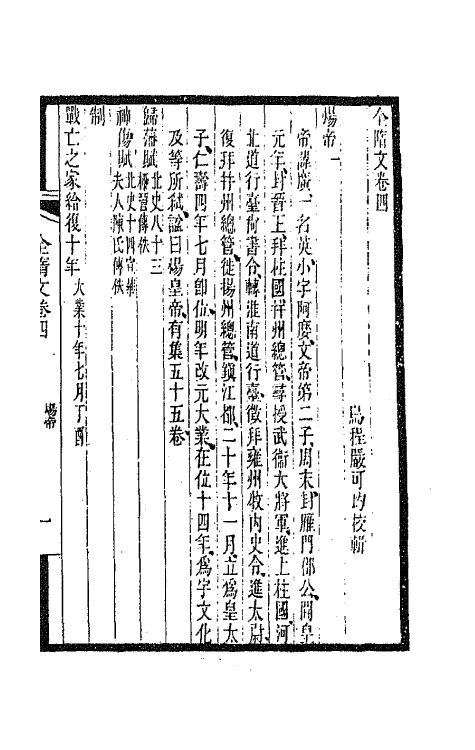 全隋文卷四
烏程嚴可均校輯
煬帝一
帝諱廣一名英小字阿㦄文帝第二子周末封雁門郡公開皇
元年封晉王拜柱國并州總管尋授武衞大將軍進上柱國河
北道行臺尚書令轉淮南道行臺徵拜雍州牧内史令進太尉
復拜并州總管徙揚州總管鎭江都二十年十一月立爲皇太
子仁壽四年七月卽位明年改元大業在位十四年爲宇文化
及等所弑諡曰煬皇帝有集五十五卷
歸藩賦 北史八十三
柳䛒傳佚
神傷賦 北史十四宣華
夫人陳氏傳佚
制
戰亡之家給復十年 大業十年七月丁酉
全隋文卷四
煬帝
一